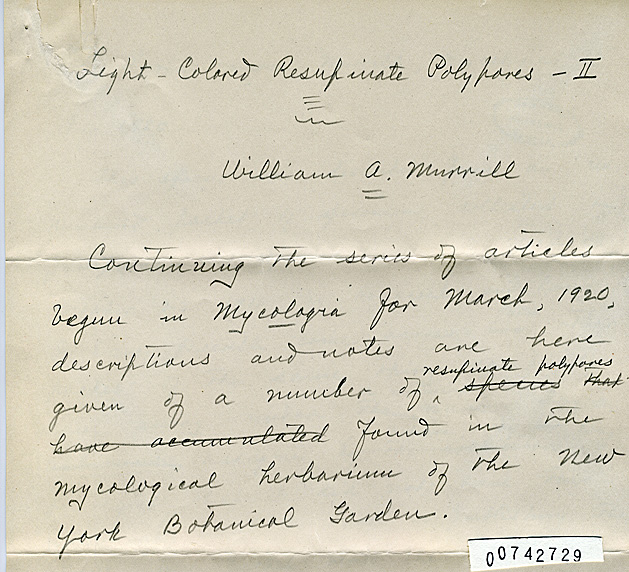 Light-Colored Resupinate Polypores - II
William A. Murrill
Continuing the series of articles
begun in Mycologia for March, 1920,
descriptions and notes are here
resupinate polypores
given of a number of ‸ species that
have accumulated found in the
mycological herbarium of the New
York Botanical Garden.
00742729